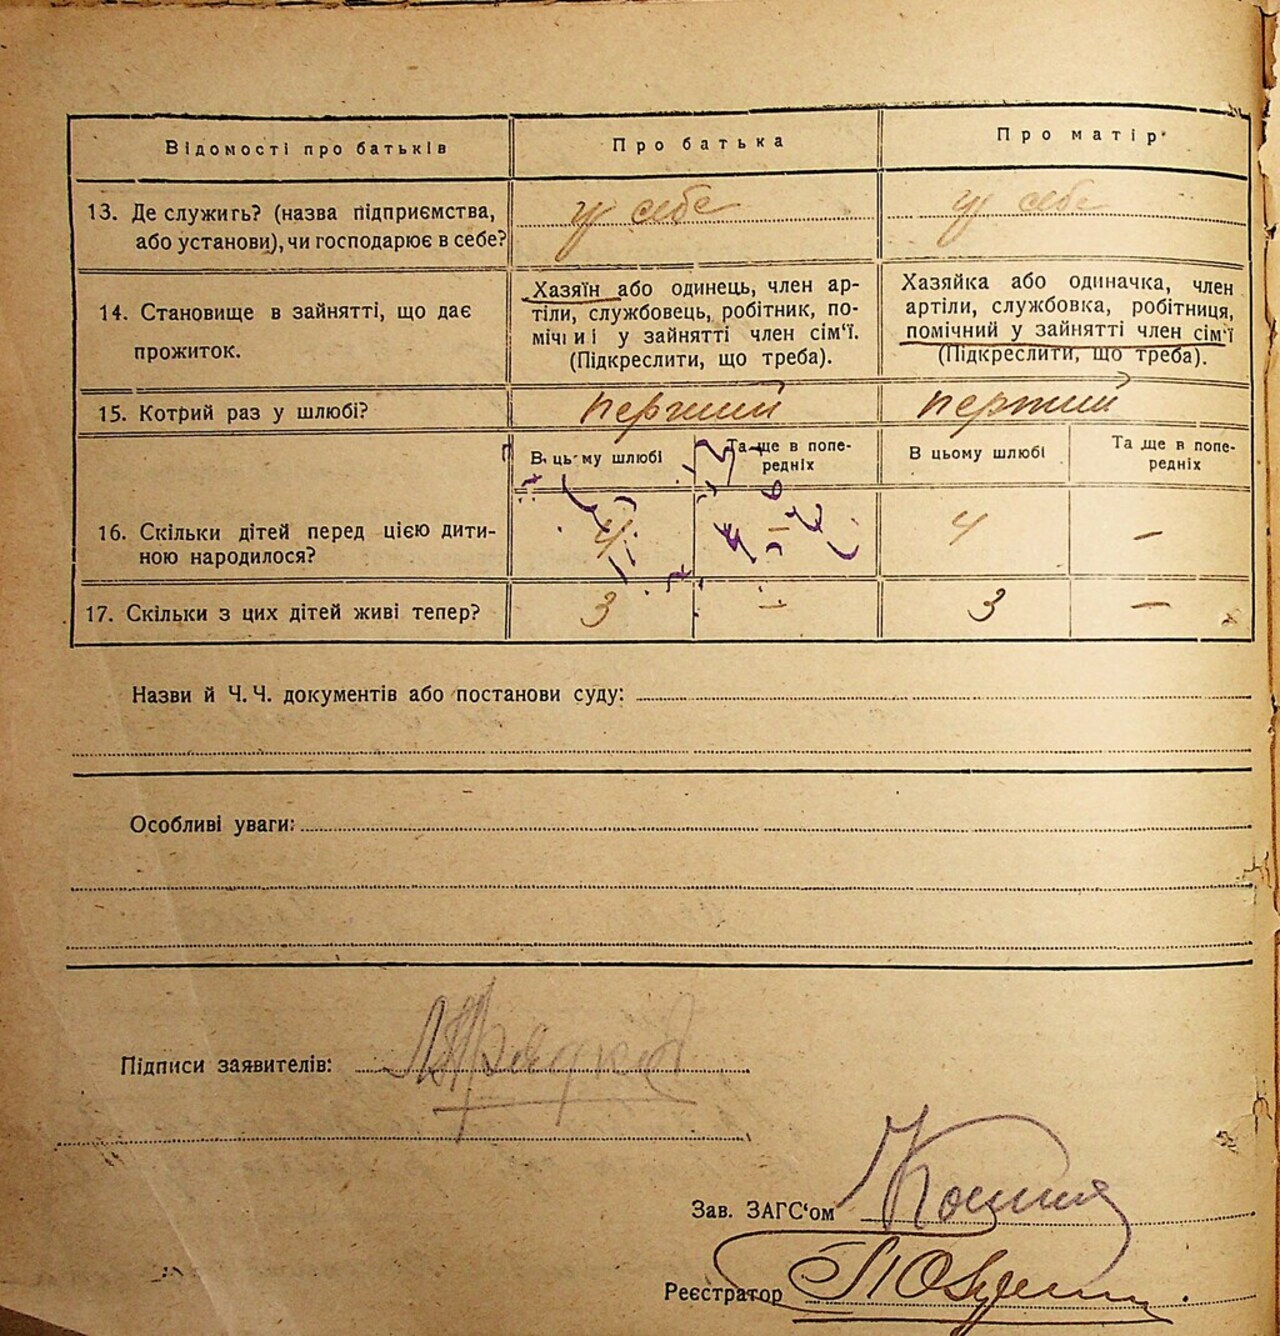 Відомості про батьків Про батька Про матір
13. Де служить? (назва підприємства, у себе у себе
або установи), чи господарює в себе?
Хазяїн або одинець, член ар- Хазяйка або одиначка, член
14. Становище в зайнятті, що дає тілі, службовець, робітник, по- артілі, службовка, робітниця,
прожиток. мічний у зайнятті член сім'ї. помічний у зайнятті член сім'ї
(Підкреслити, що треба). (Підкреслити, що треба).
15. Котрий раз у шлюбі? перший перший
В цьому шлюбі Та ще в попе- В цьому шлюбі Та ще в попе-
редніх редніх
16. Скільки дітей перед цією дити- 4 — 4 —
ною народилося?
17. Скільки з цих дітей живі тепер? 3 — 3 —
Назви й Ч. Ч. документів або постанови суду:
Особливі уваги:
Підписи заявителів:
Зав. ЗАГС'ом
Реєстратор